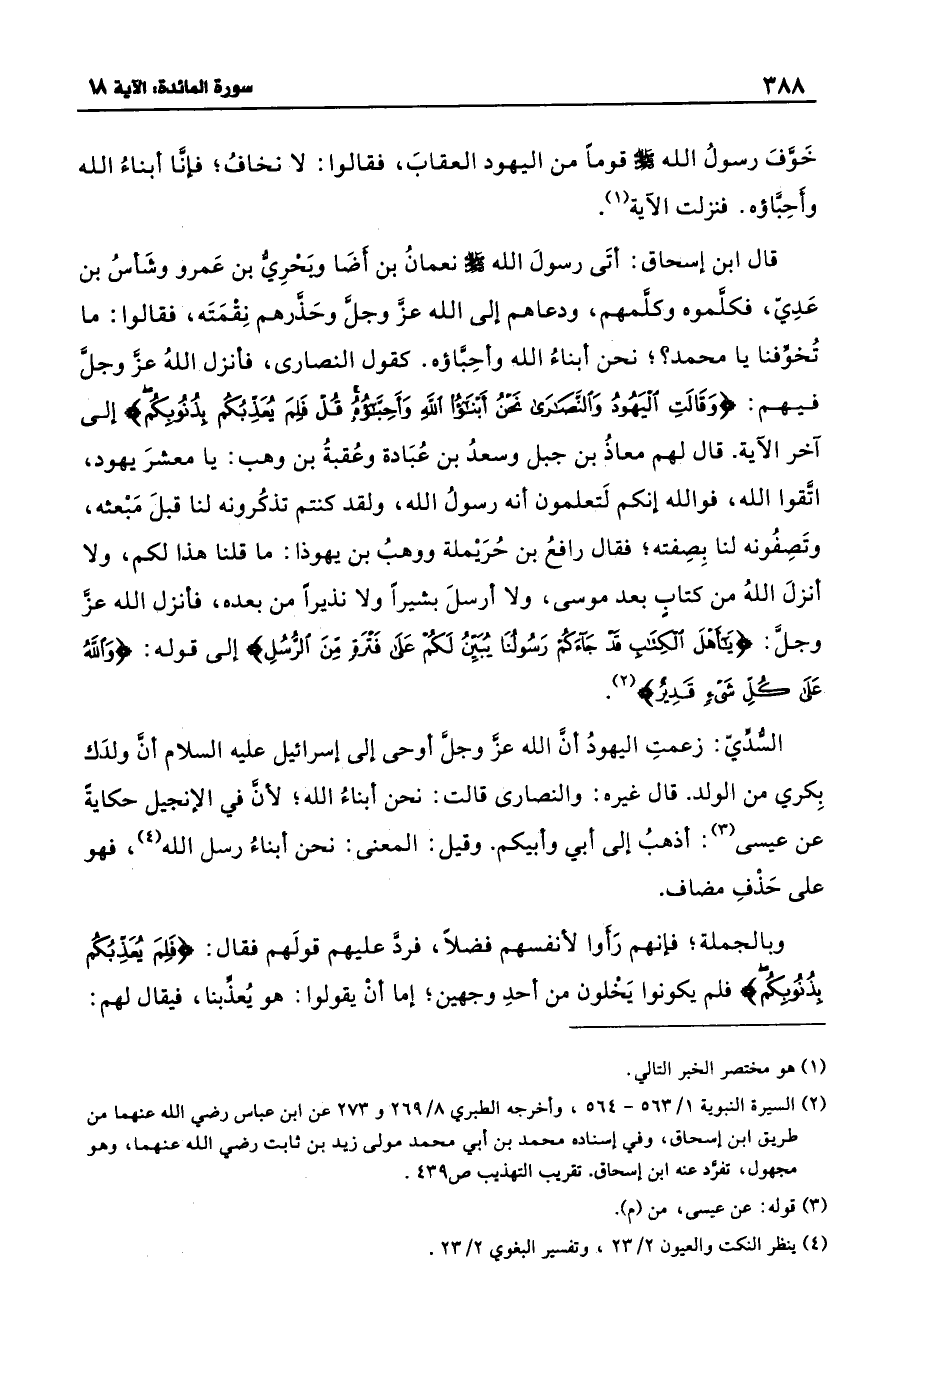 ٣٨٨
سورة المائدة: الآية ١٨
خَوَّفَ رسولُ الله ﷺ قوماً من اليهود العقابَ، فقالوا: لا نخافُ؛ فإنَّا أبناءُ الله
وأَحِبَّاؤه. فنزلت الآية(١).
قال ابن إسحاق: أتَى رسولَ الله ﷺ نعمانُ بن أَضَا وبَحْرِيُّ بن عَمرو وشَأسُ بن
عَدِيّ، فكلَّموه وكلَّمهم، ودعاهم إلى الله عزَّ وجلَّ وحَذَّرهم نِقْمَتَه، فقالوا: ما
تُخوِّفنا يا محمد؟؛ نحن أبناءُ الله وأحِبَّاؤه. كقول النصارى، فأنزل اللهُ عزَّ وجلَّ
فيهم: ﴿وَقَالَتِ الْيَهُودُ وَالنَّصَارَىٰ نَحْنُ أَبْنَاءُ اللَّهِ وَأَحِبَّاؤُهُ قُلْ فَلِمَ يُعَذِّبُكُم بِذُنُوبِكُم﴾ إلى
آخر الآية. قال لهم معاذُ بن جبل وسعدُ بن عُبَادة وعُقبةُ بن وهب: يا معشرَ يهود،
اتَّقوا الله، فوالله إنكم لَتعلمون أنه رسولُ الله، ولقد كنتم تذكُرونه لنا قبلَ مَبْعثه،
وتَصِفُونه لنا بِصِفته؛ فقال رافعُ بن حُرَيْملة ووهبُ بن يهوذا: ما قلنا هذا لكم، ولا
أنزلَ اللهُ من كتابٍ بعد موسى، ولا أرسلَ بشيراً ولا نذيراً من بعده، فأنزل الله عزَّ
وجلَّ: ﴿يَا أَهْلَ الْكِتَابِ قَدْ جَاءَكُمْ رَسُولُنَا يُبَيِّنُ لَكُمْ عَلَىٰ فَتْرَةٍ مِّنَ الرُّسُلِ﴾ إلى قوله: ﴿وَاللَّهُ
عَلَىٰ كُلِّ شَيْءٍ قَدِيرٌ﴾(٢).
السُّدِّيّ: زعمتِ اليهودُ أنَّ الله عزَّ وجلَّ أوحى إلى إسرائيل عليه السلام أنَّ ولدَك
بِكري من الولد. قال غيره: والنصارى قالت: نحن أبناءُ الله؛ لأنَّ في الإنجيل حكايةً
عن عيسى(٣): أذهبُ إلى أبي وأبيكم. وقيل: المعنى: نحن أبناءُ رسل الله(٤)، فهو
على حَذْفِ مضاف.
وبالجملة؛ فإنهم رَأَوا لأنفسهم فضلاً، فردَّ عليهم قولَهم فقال: ﴿فَلِمَ يُعَذِّبُكُم
بِذُنُوبِكُم﴾ فلم يكونوا يَخْلون من أحدِ وجهين؛ إما أنْ يقولوا: هو يُعذِّبنا، فيقال لهم:
(١) هو مختصر الخبر التالي.
(٢) السيرة النبوية ١/ ٥٦٣ - ٥٦٤ ، وأخرجه الطبري ٨/ ٢٦٩ و ٢٧٣ عن ابن عباس رضي الله عنهما من
طريق ابن إسحاق، وفي إسناده محمد بن أبي محمد مولى زيد بن ثابت رضي الله عنهما، وهو
مجهول، تفرَّد عنه ابن إسحاق. تقريب التهذيب ص٤٣٩ .
(٣) قوله: عن عيسى، من (م).
(٤) ينظر النكت والعيون ٢/ ٢٣ ، وتفسير البغوي ٢/ ٢٣ .